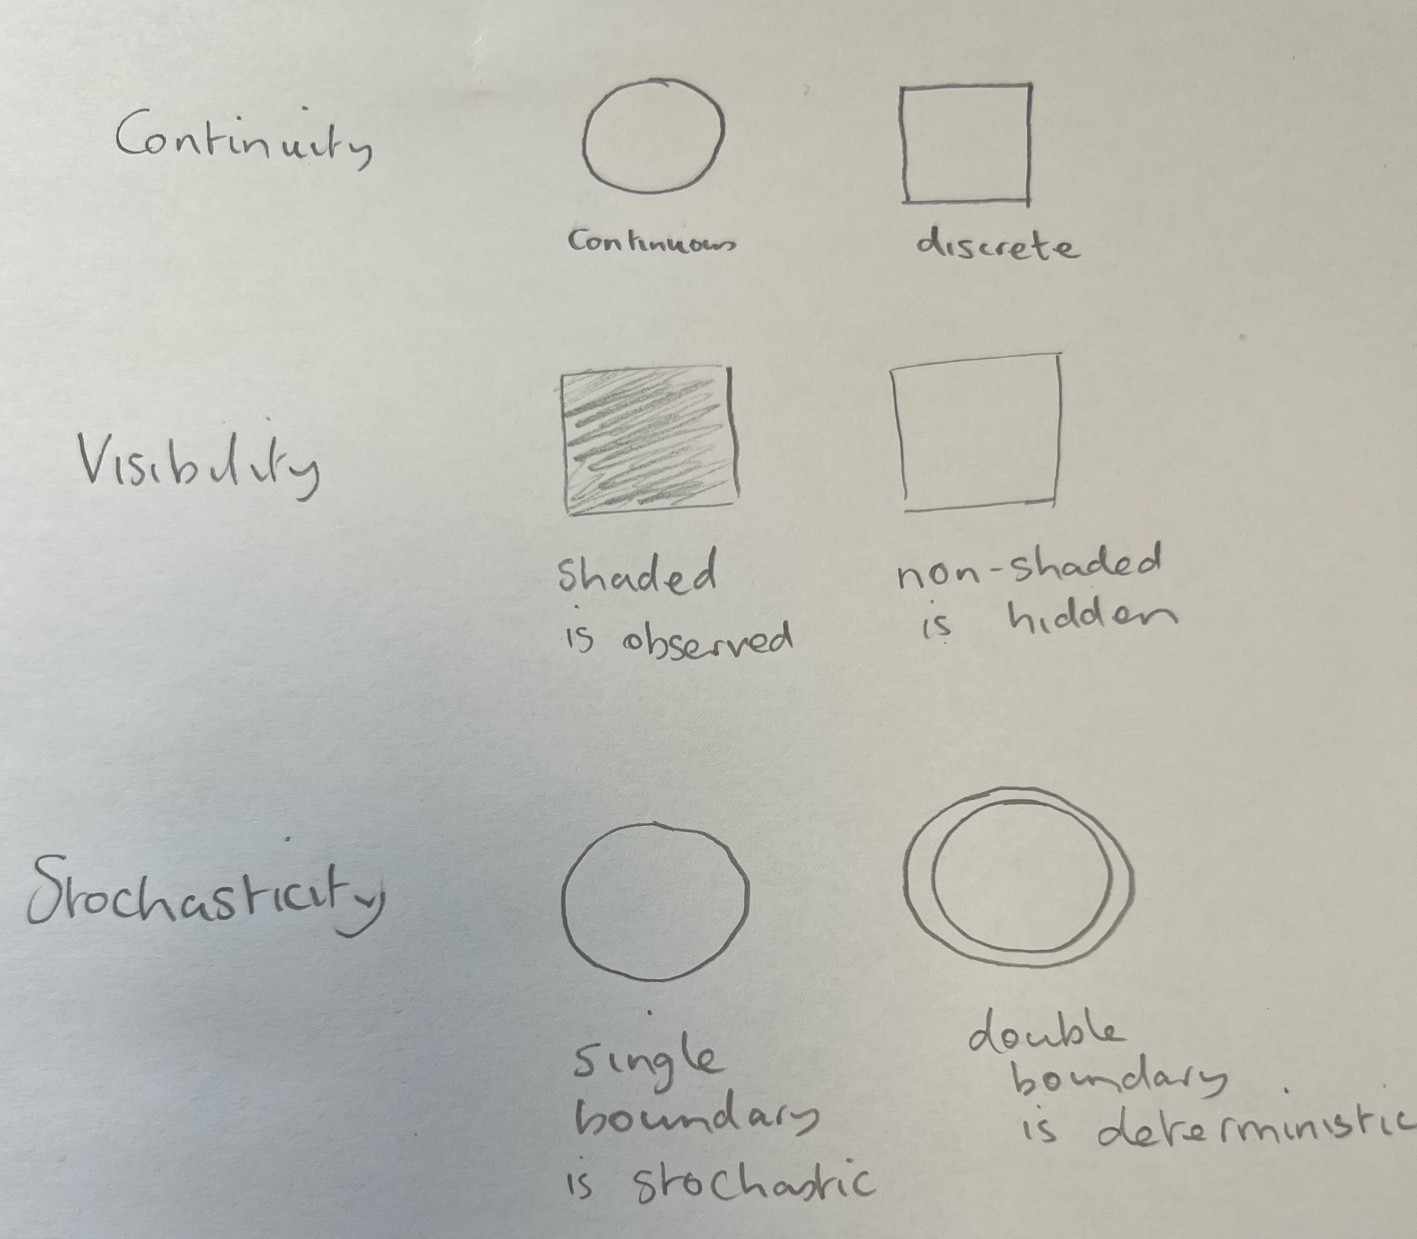 Continuity
Continuous
discrete
Visibility
shaded
is observed
non-shaded
is hidden
Stochasticity
single
boundary
is stochastic
double
boundary
is deterministic